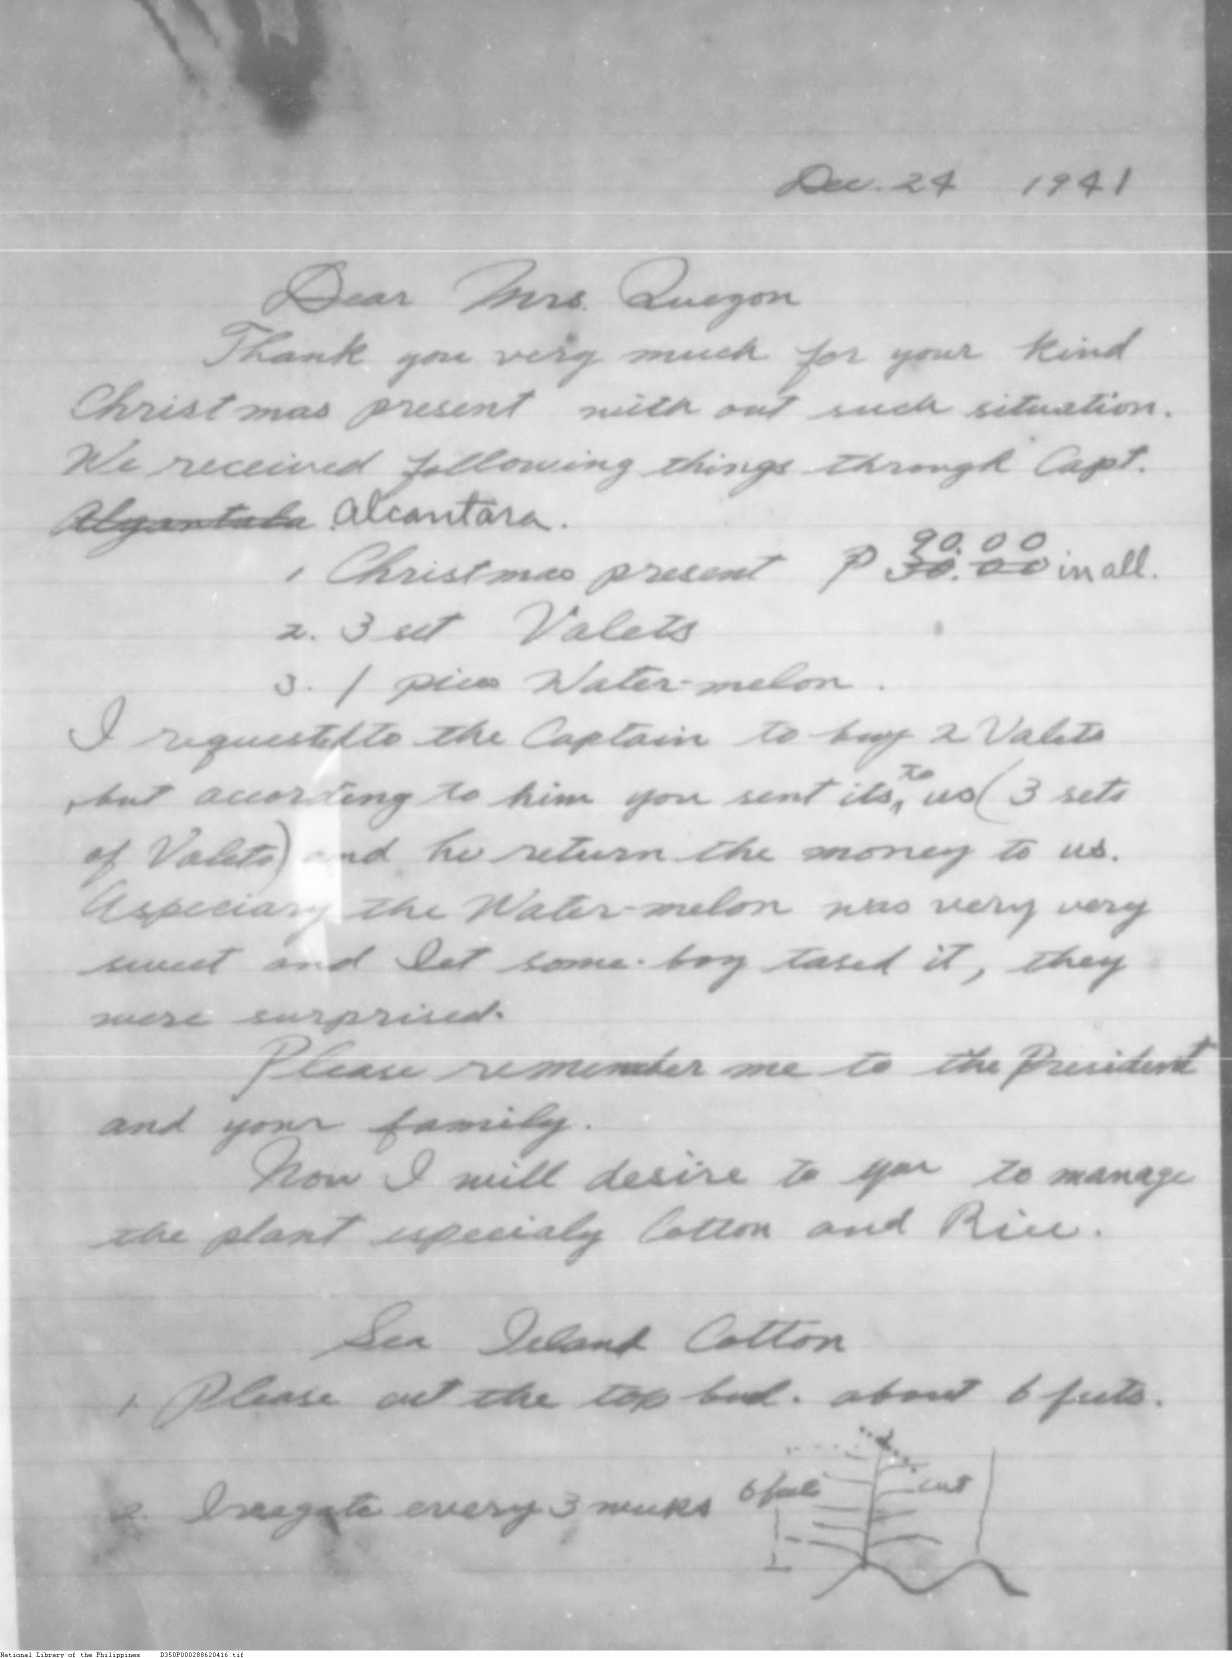 Dec. 24 1941
Dear Mrs. Quezon
Thank you very much for your kind
Christmas present with out such situation.
We received following things through Capt.
Algantala Alcantara.
1 Christmas present ₱ 30.00 90.00 in all.
2. 3 set Valets
3. 1 piece Water-melon.
I requested to the Captain to buy 2 Valets
, but according to him you sent its, to us (3 sets
of Valets) and he return the money to us.
Aspeciary the Water-melon was very very
sweet and I let some boy tased it, they
were surprised.
Please remember me to the President
and your family.
Now I will desire to you to manage
the plant especialy Cotton and Rice.
Sea Island Cotton
1. Please cut the top bud. about 6 feets.
6 feet cut
2. Irregate every 3 weeks
National Library of the Philippines D350P000288620416.tif